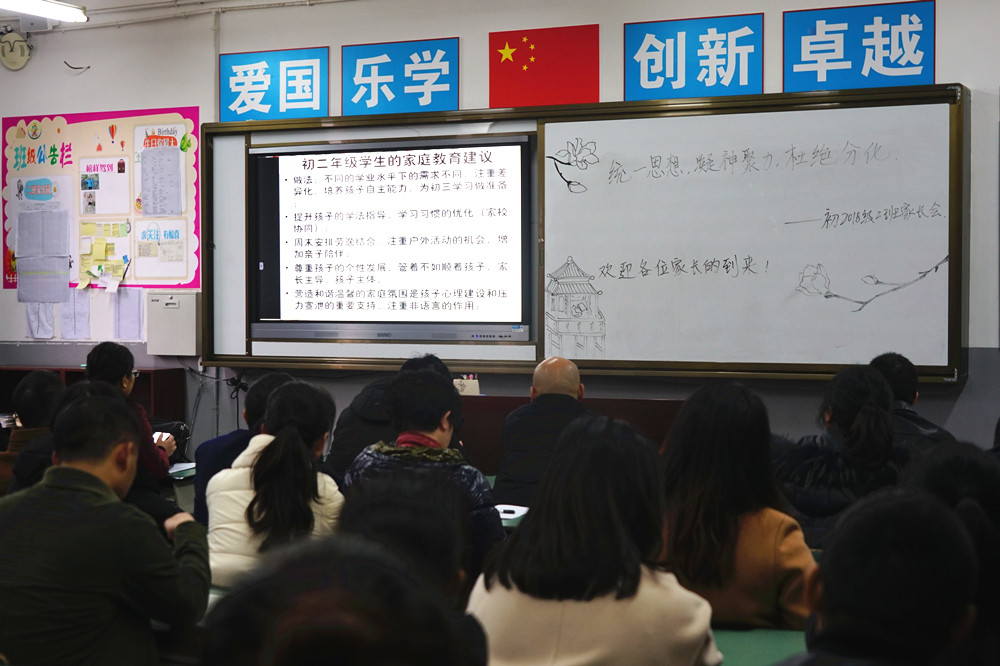 爱国
乐学
创新
卓越
班级公告栏
Birthday
榜样驾到
初二年级学生的家庭教育建议
• 做法：不同的学业水平下的需求不同，注重差
异化，培养孩子自主能力，为初三学习做准备
；
• 提升孩子的学法指导，学习习惯的优化（家校
协同）；
• 周末安排劳逸结合，注重户外活动的机会，增
加亲子陪伴。
• 尊重孩子的个性发展，管着不如顺着孩子，家
长主导，孩子主体。
• 营造和谐温馨的家庭氛围是孩子心理建设和压
力宣泄的重要支持，注重非语言的作用。
统一思想，凝神聚力，杜绝分化．
——初2018级二班家长会．
欢迎各位家长的到来！